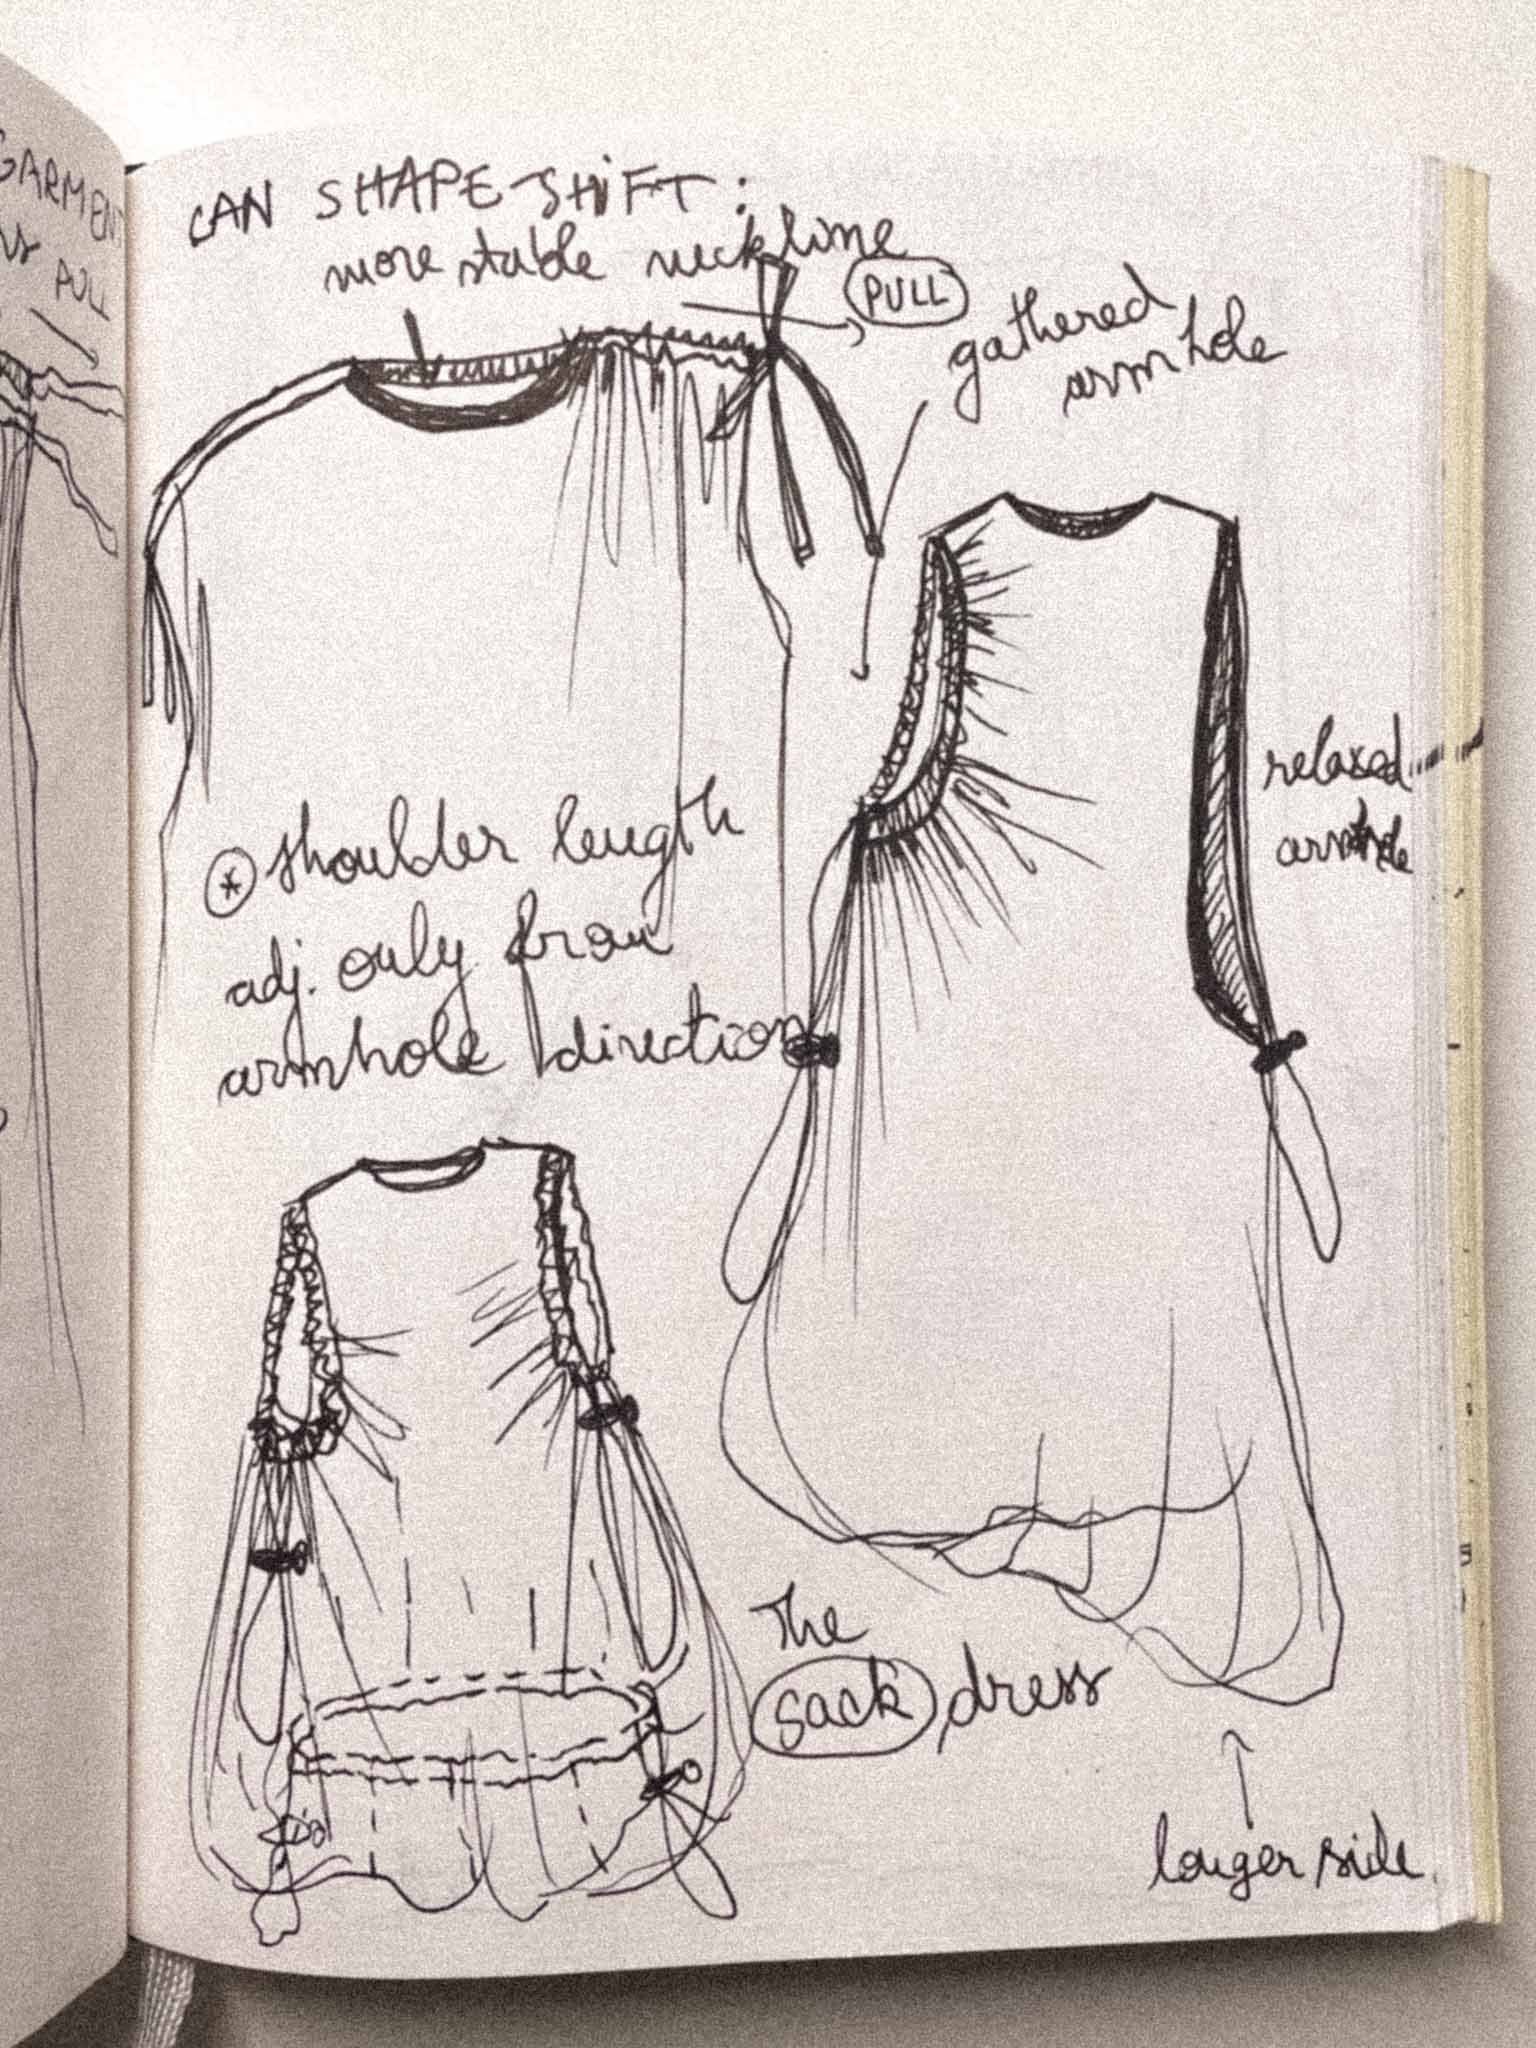 GARMENT
PULL
CAN SHAPE SHIFT:
more stable neckline
PULL
gathered
armhole
relaxed
armhole
* shoulder length
adj. only from
armhole direction
The
sack dress
longer side